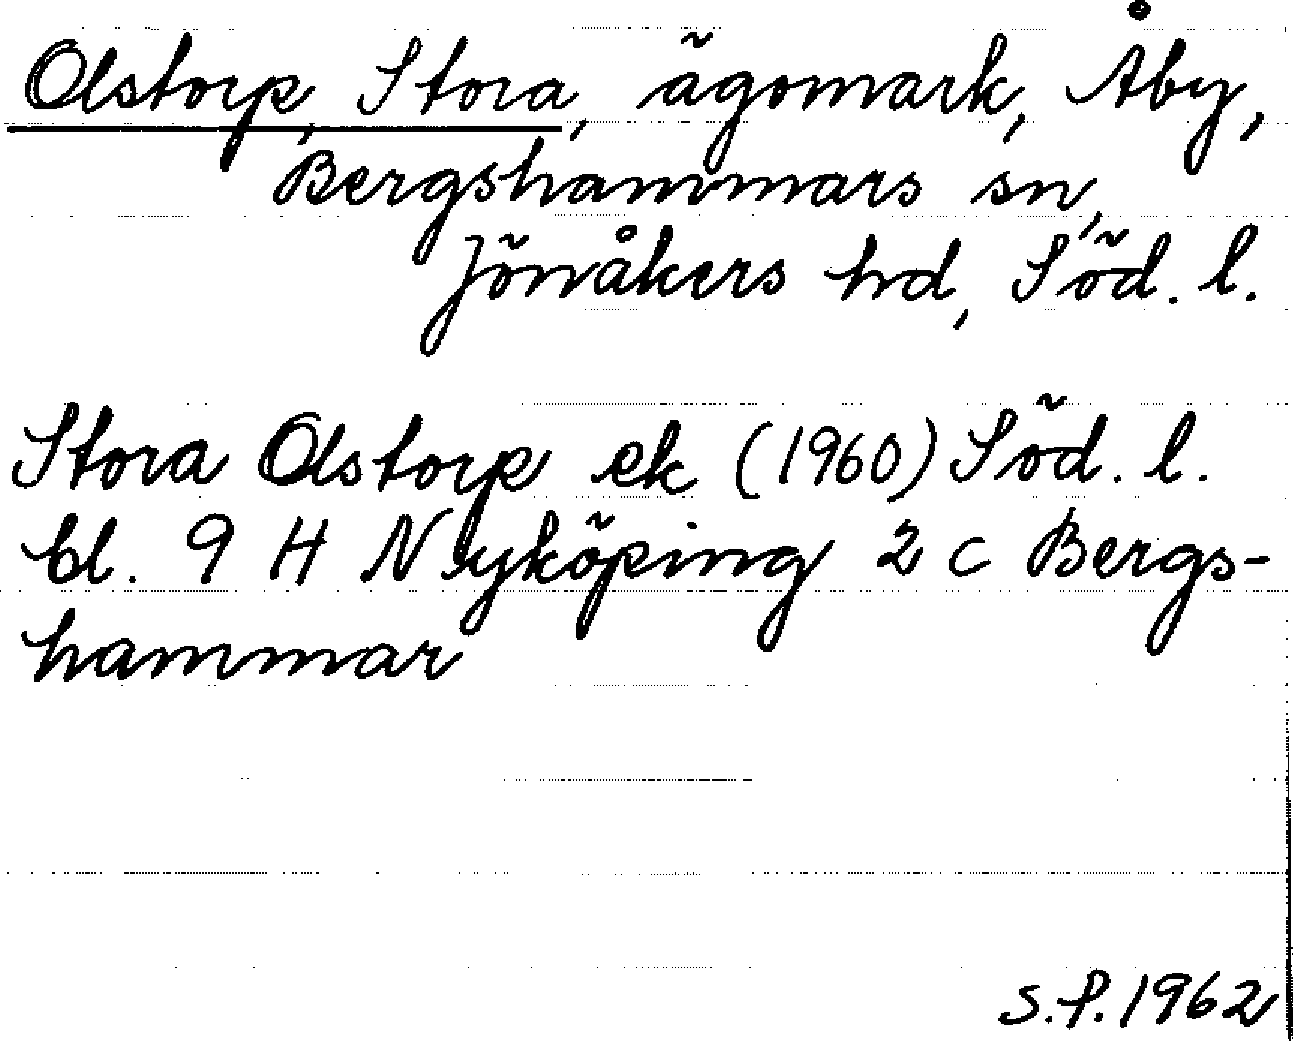 Olstorp, Stora, ägomark, Åby,
Bergshammars sn,
Jönåkers hd, Söd. l.
Stora Olstorp ek (1960) Söd. l.
bl. 9 H Nyköping 2 c Bergs-
hammar
S.P. 1962